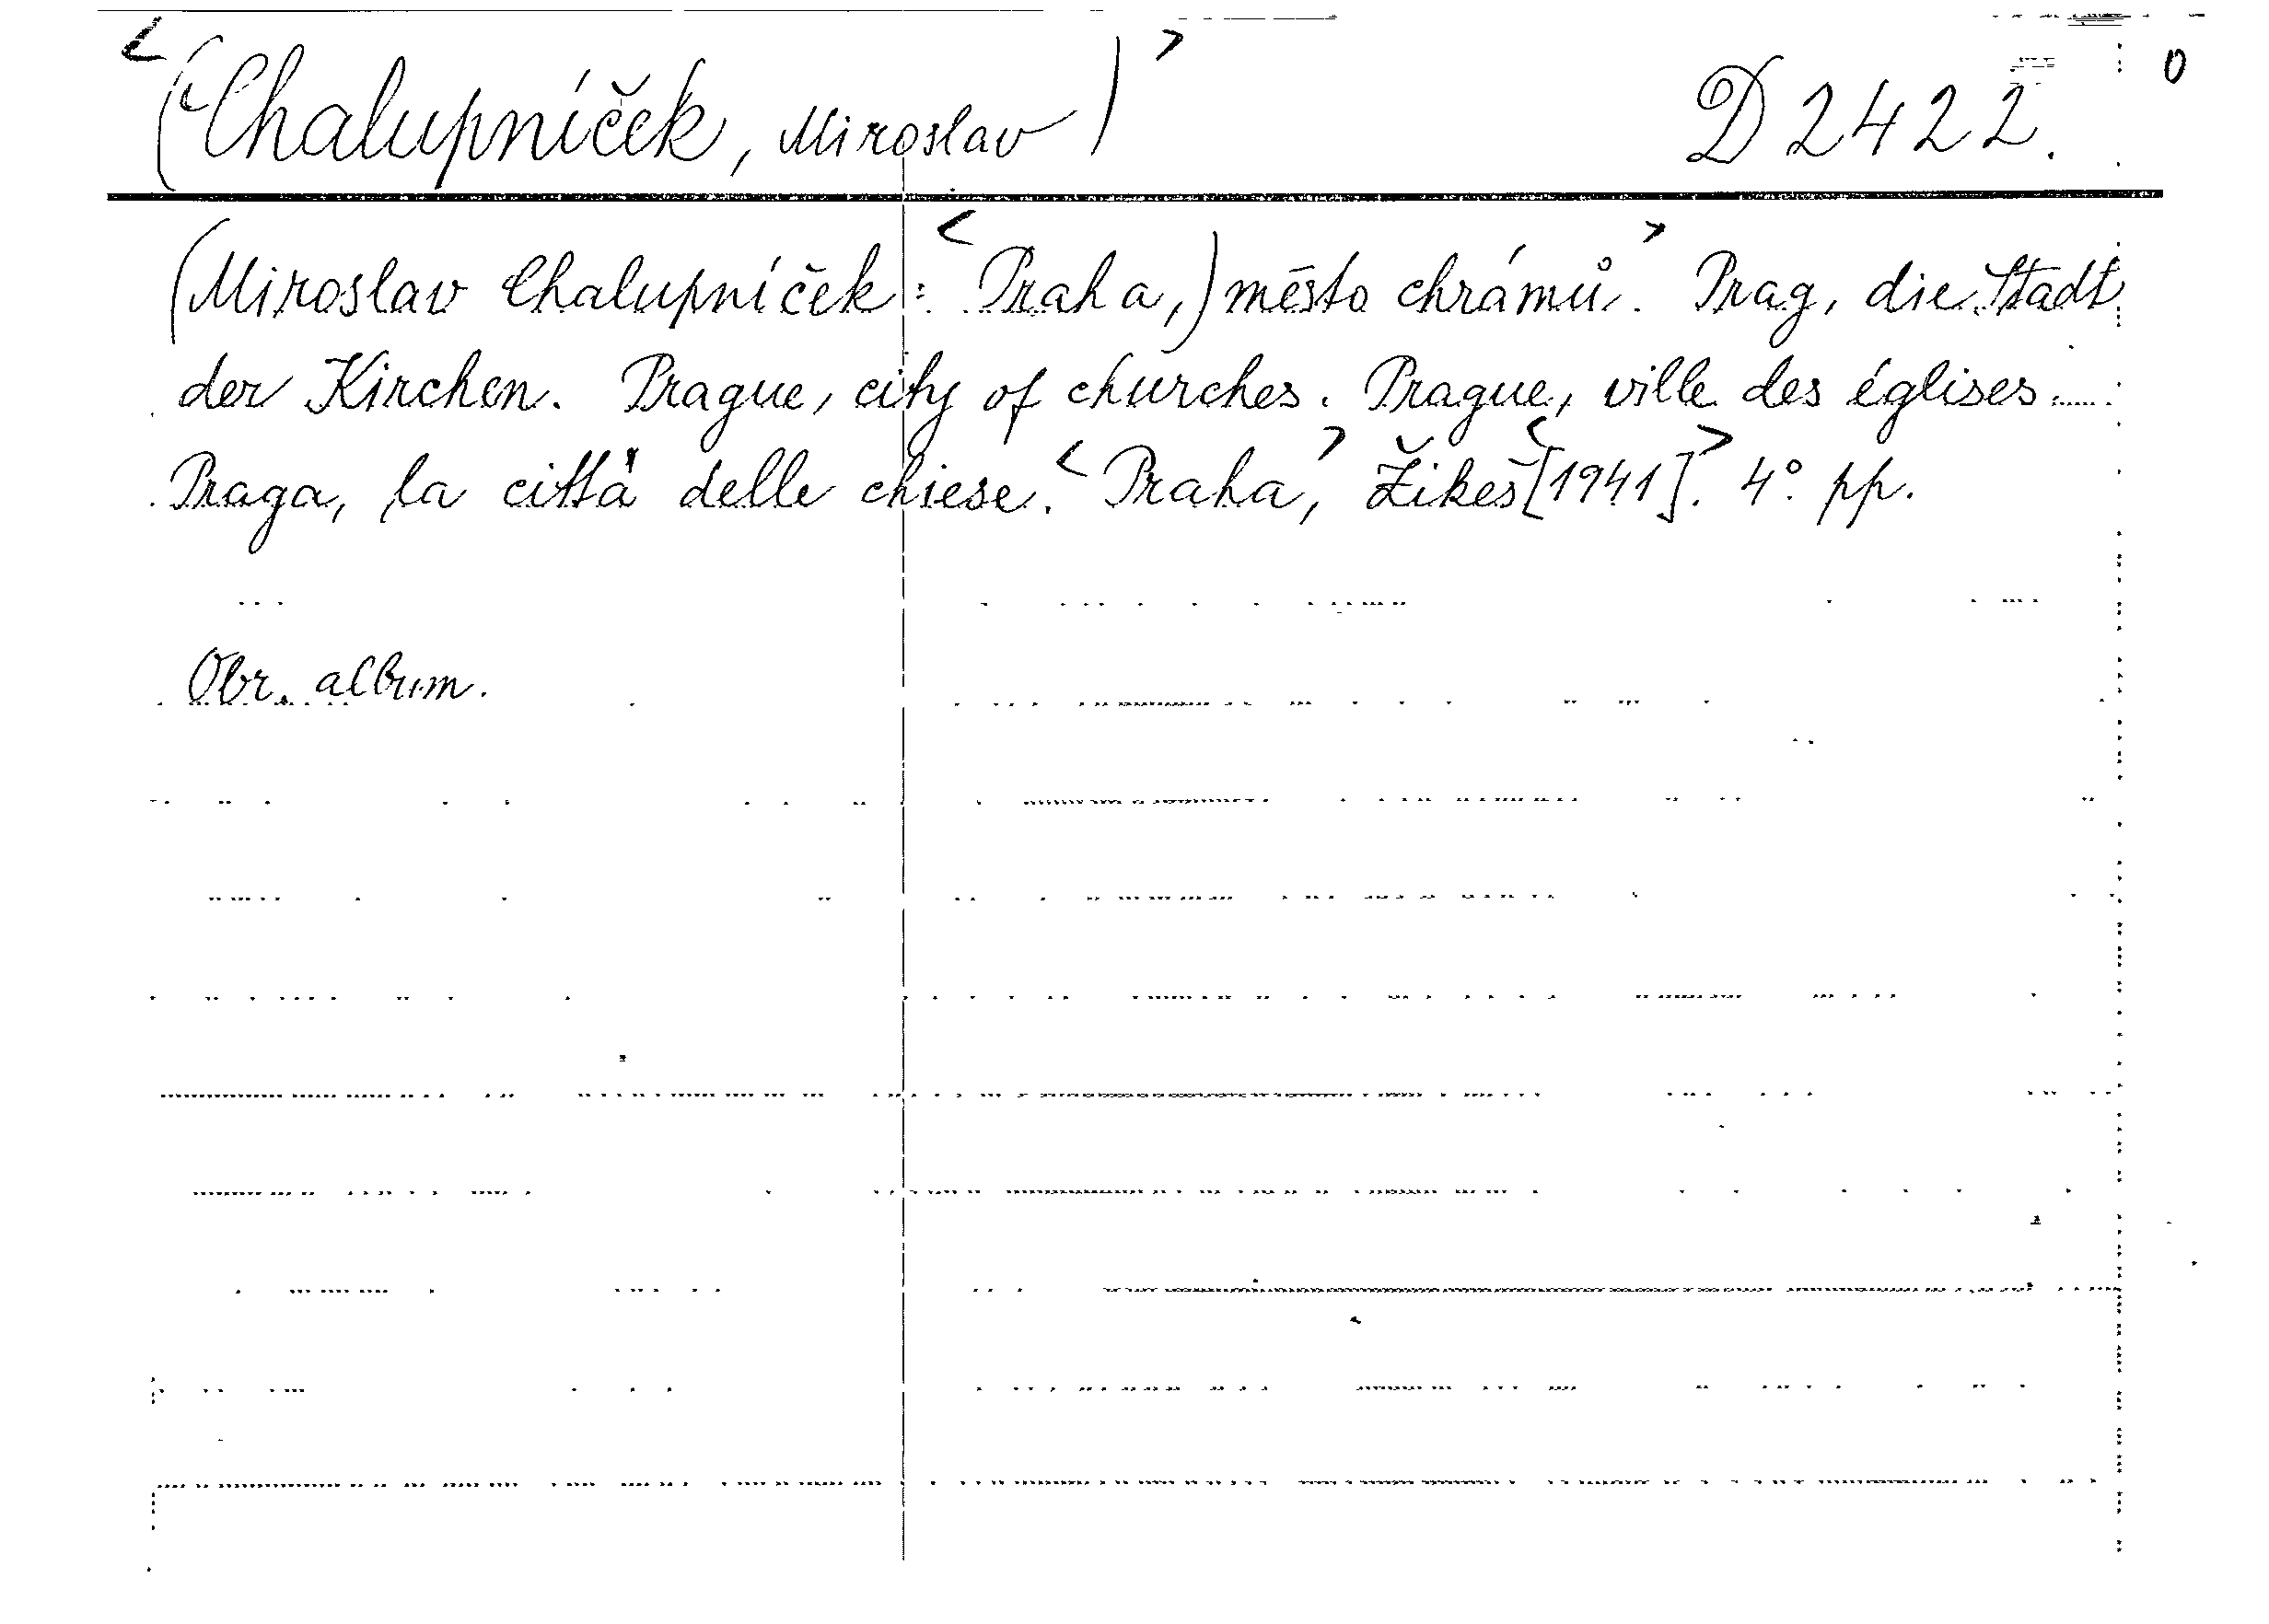 <(Chalupníček, Miroslav)> D 2422. 0
(Miroslav Chalupníček: <Praha,) město chrámů.> Prag, die Stadt
der Kirchen. Prague, city of churches. Prague, ville des églises.
Praga, la città delle chiese. <Praha,> Žikeš <[1941].> 4° pp.
Obr. album.